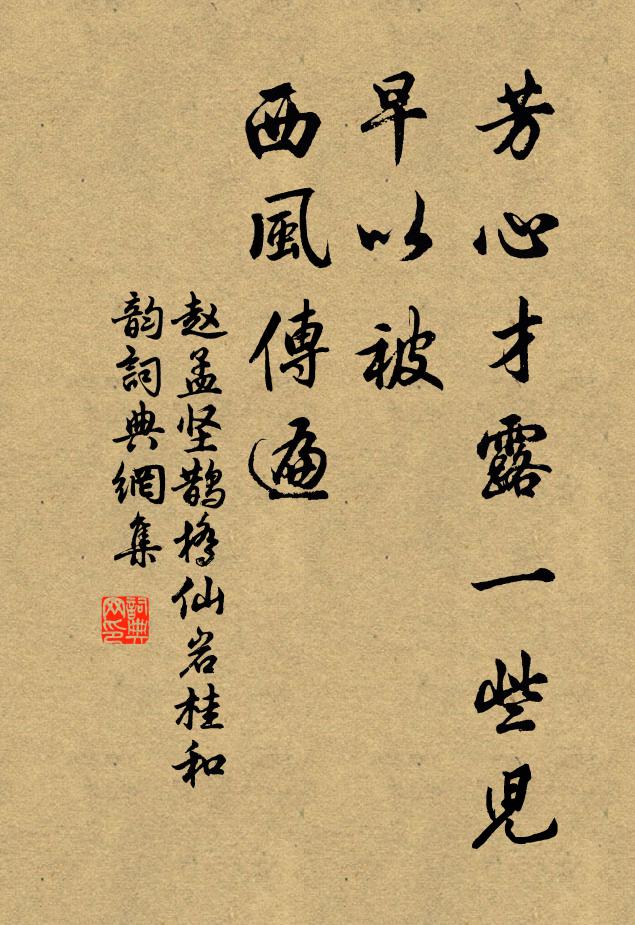 芳心才露一些兒
早以被
西風傳遍
赵孟坚鹊橋仙岩桂和
韵詞典網集
詞典
网印